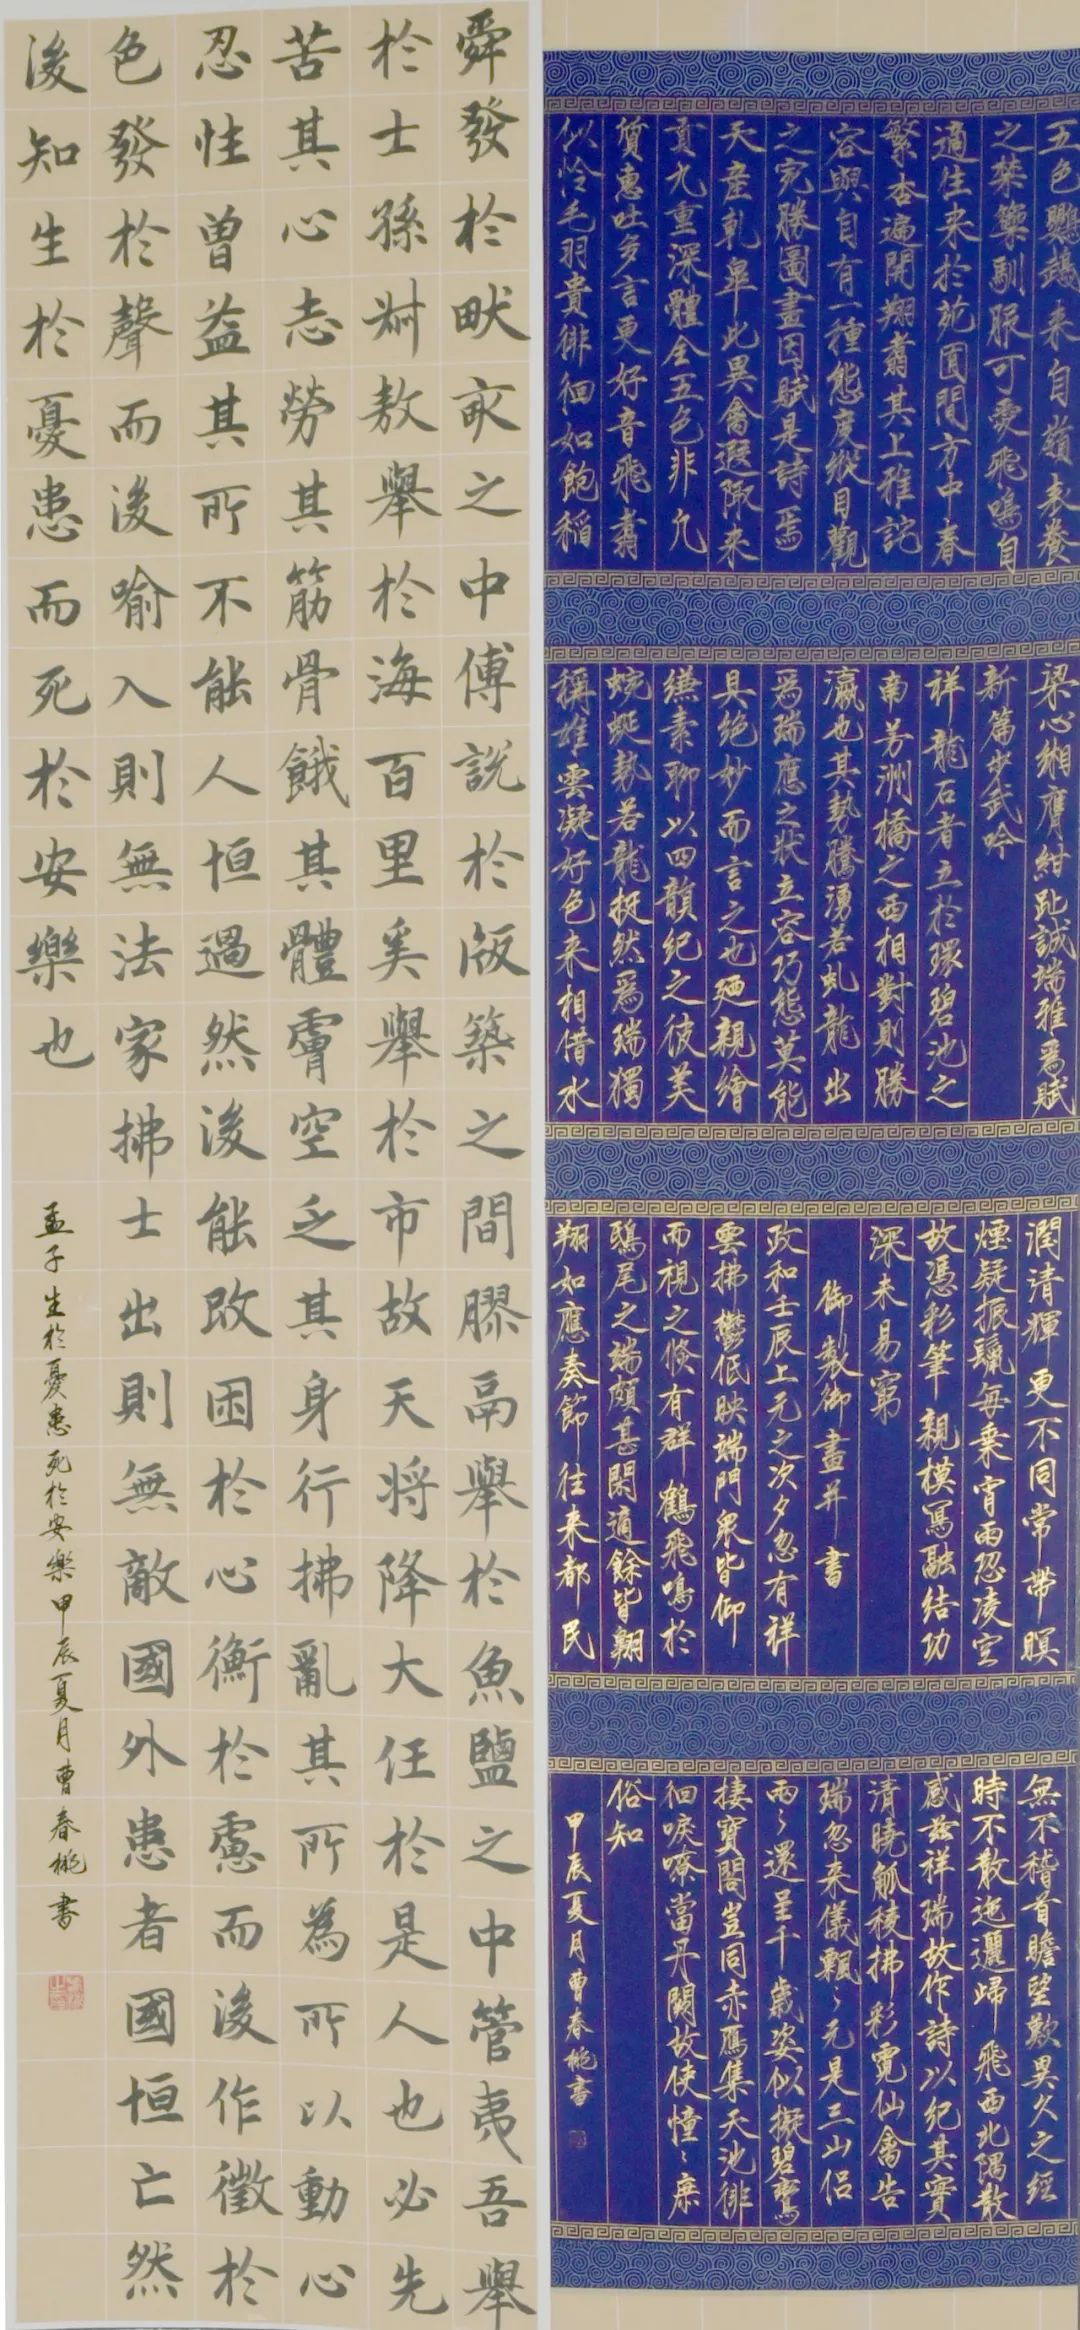 舜發於畎畝之中傅說於版築之間膠鬲舉於魚鹽之中管夷吾舉
於士孫叔敖舉於海百里奚舉於市故天將降大任於是人也必先
苦其心志勞其筋骨餓其體膚空乏其身行拂亂其所為所以動心
忍性曾益其所不能人恒過然後能改困於心衡於慮而後作徵於
色發於聲而後喻入則無法家拂士出則無敵國外患者國恒亡然
後知生於憂患而死於安樂也
孟子生於憂患死於安樂甲辰夏月曹春桃書
五色鸚鵡来自嶺表養
之禁籞馴服可愛飛鳴自
適往来於苑囿間方中春
繁杏遍開翔翥其上雅詫
容與自有一種態度縱目觀
之宛勝圖畫因賦是詩焉
天產乹皐此異禽遐陬来
貢九重深體全五色非凡
質惠吐多言更好音飛翥
似怜毛羽貴徘徊如飽稲
梁心緗膺紺趾誠端雅為賦
新篇步武吟
祥龍石者立於環碧池之
南芳洲橋之西相對則勝
瀛也其勢騰湧若虬龍出
為瑞應之狀立容巧態莫能
具絶妙而言之也廼親繪
縑素聊以四韻紀之彼美
蜿蜒勢若龍挺然為瑞獨
稱雄雲凝好色来相借水
潤清輝更不同常帶暝
煙疑振鬣每乗宵雨恐凌空
故憑彩筆親模冩融結功
深未易窮
御製御畫并書
政和壬辰上元之次夕忽有祥
雲拂鬱低映端門衆皆仰
而視之倐有群鶴飛鳴於
鴟尾之端頗甚閑適餘皆翺
翔如應奏節往来都民
無不稽首瞻望歎異久之經
時不散迤邐歸飛西北隅散
感兹祥瑞故作詩以紀其實
清曉觚稜拂彩霓仙禽告
瑞忽来儀飄〻元是三山侣
兩〻還呈千歲姿似擬碧鸞
棲寶閣豈同赤鴈集天池徘
徊唳嘹當丹闕故使憧〻庶
俗知
甲辰夏月曹春桃書